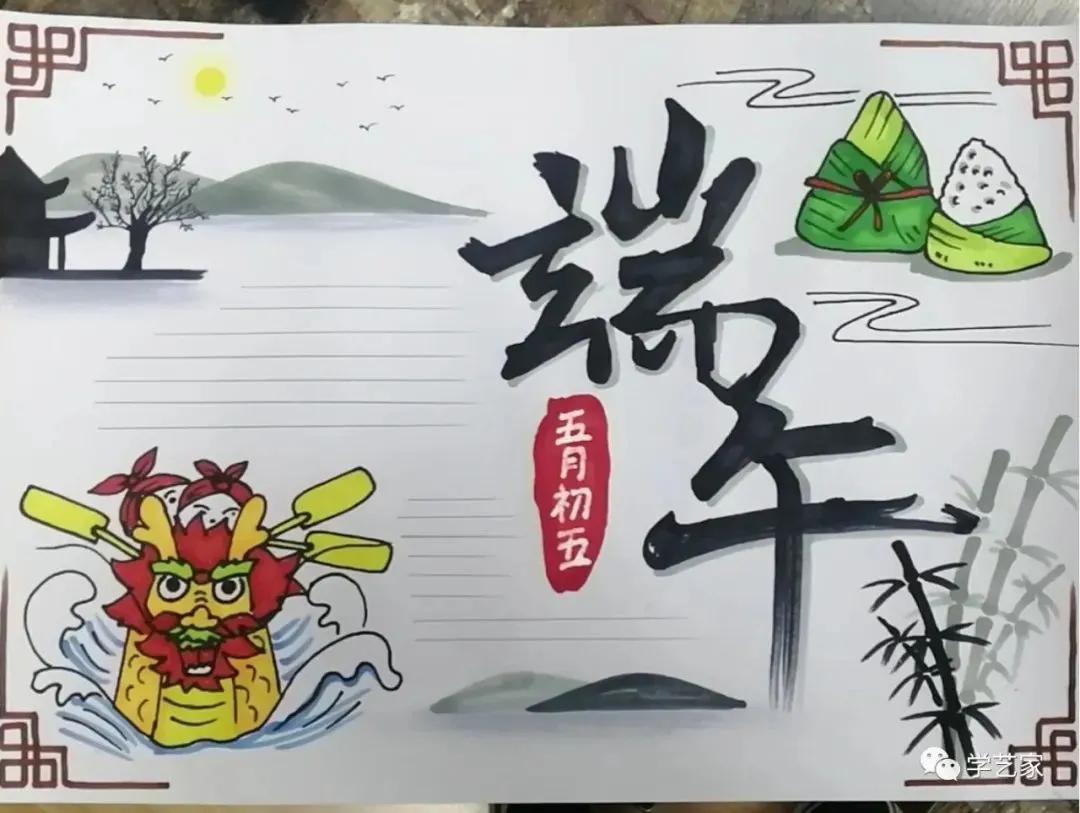 端午
五月初五
学艺家